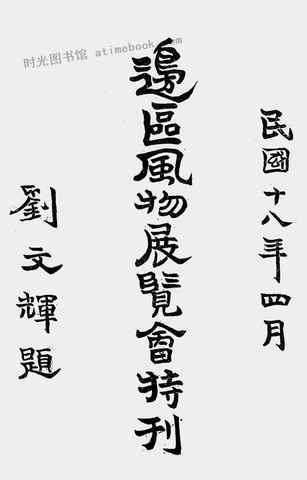 时光图书馆 atimebook.com
民國十八年四月
邊區風物展覽會特刊
劉文輝題